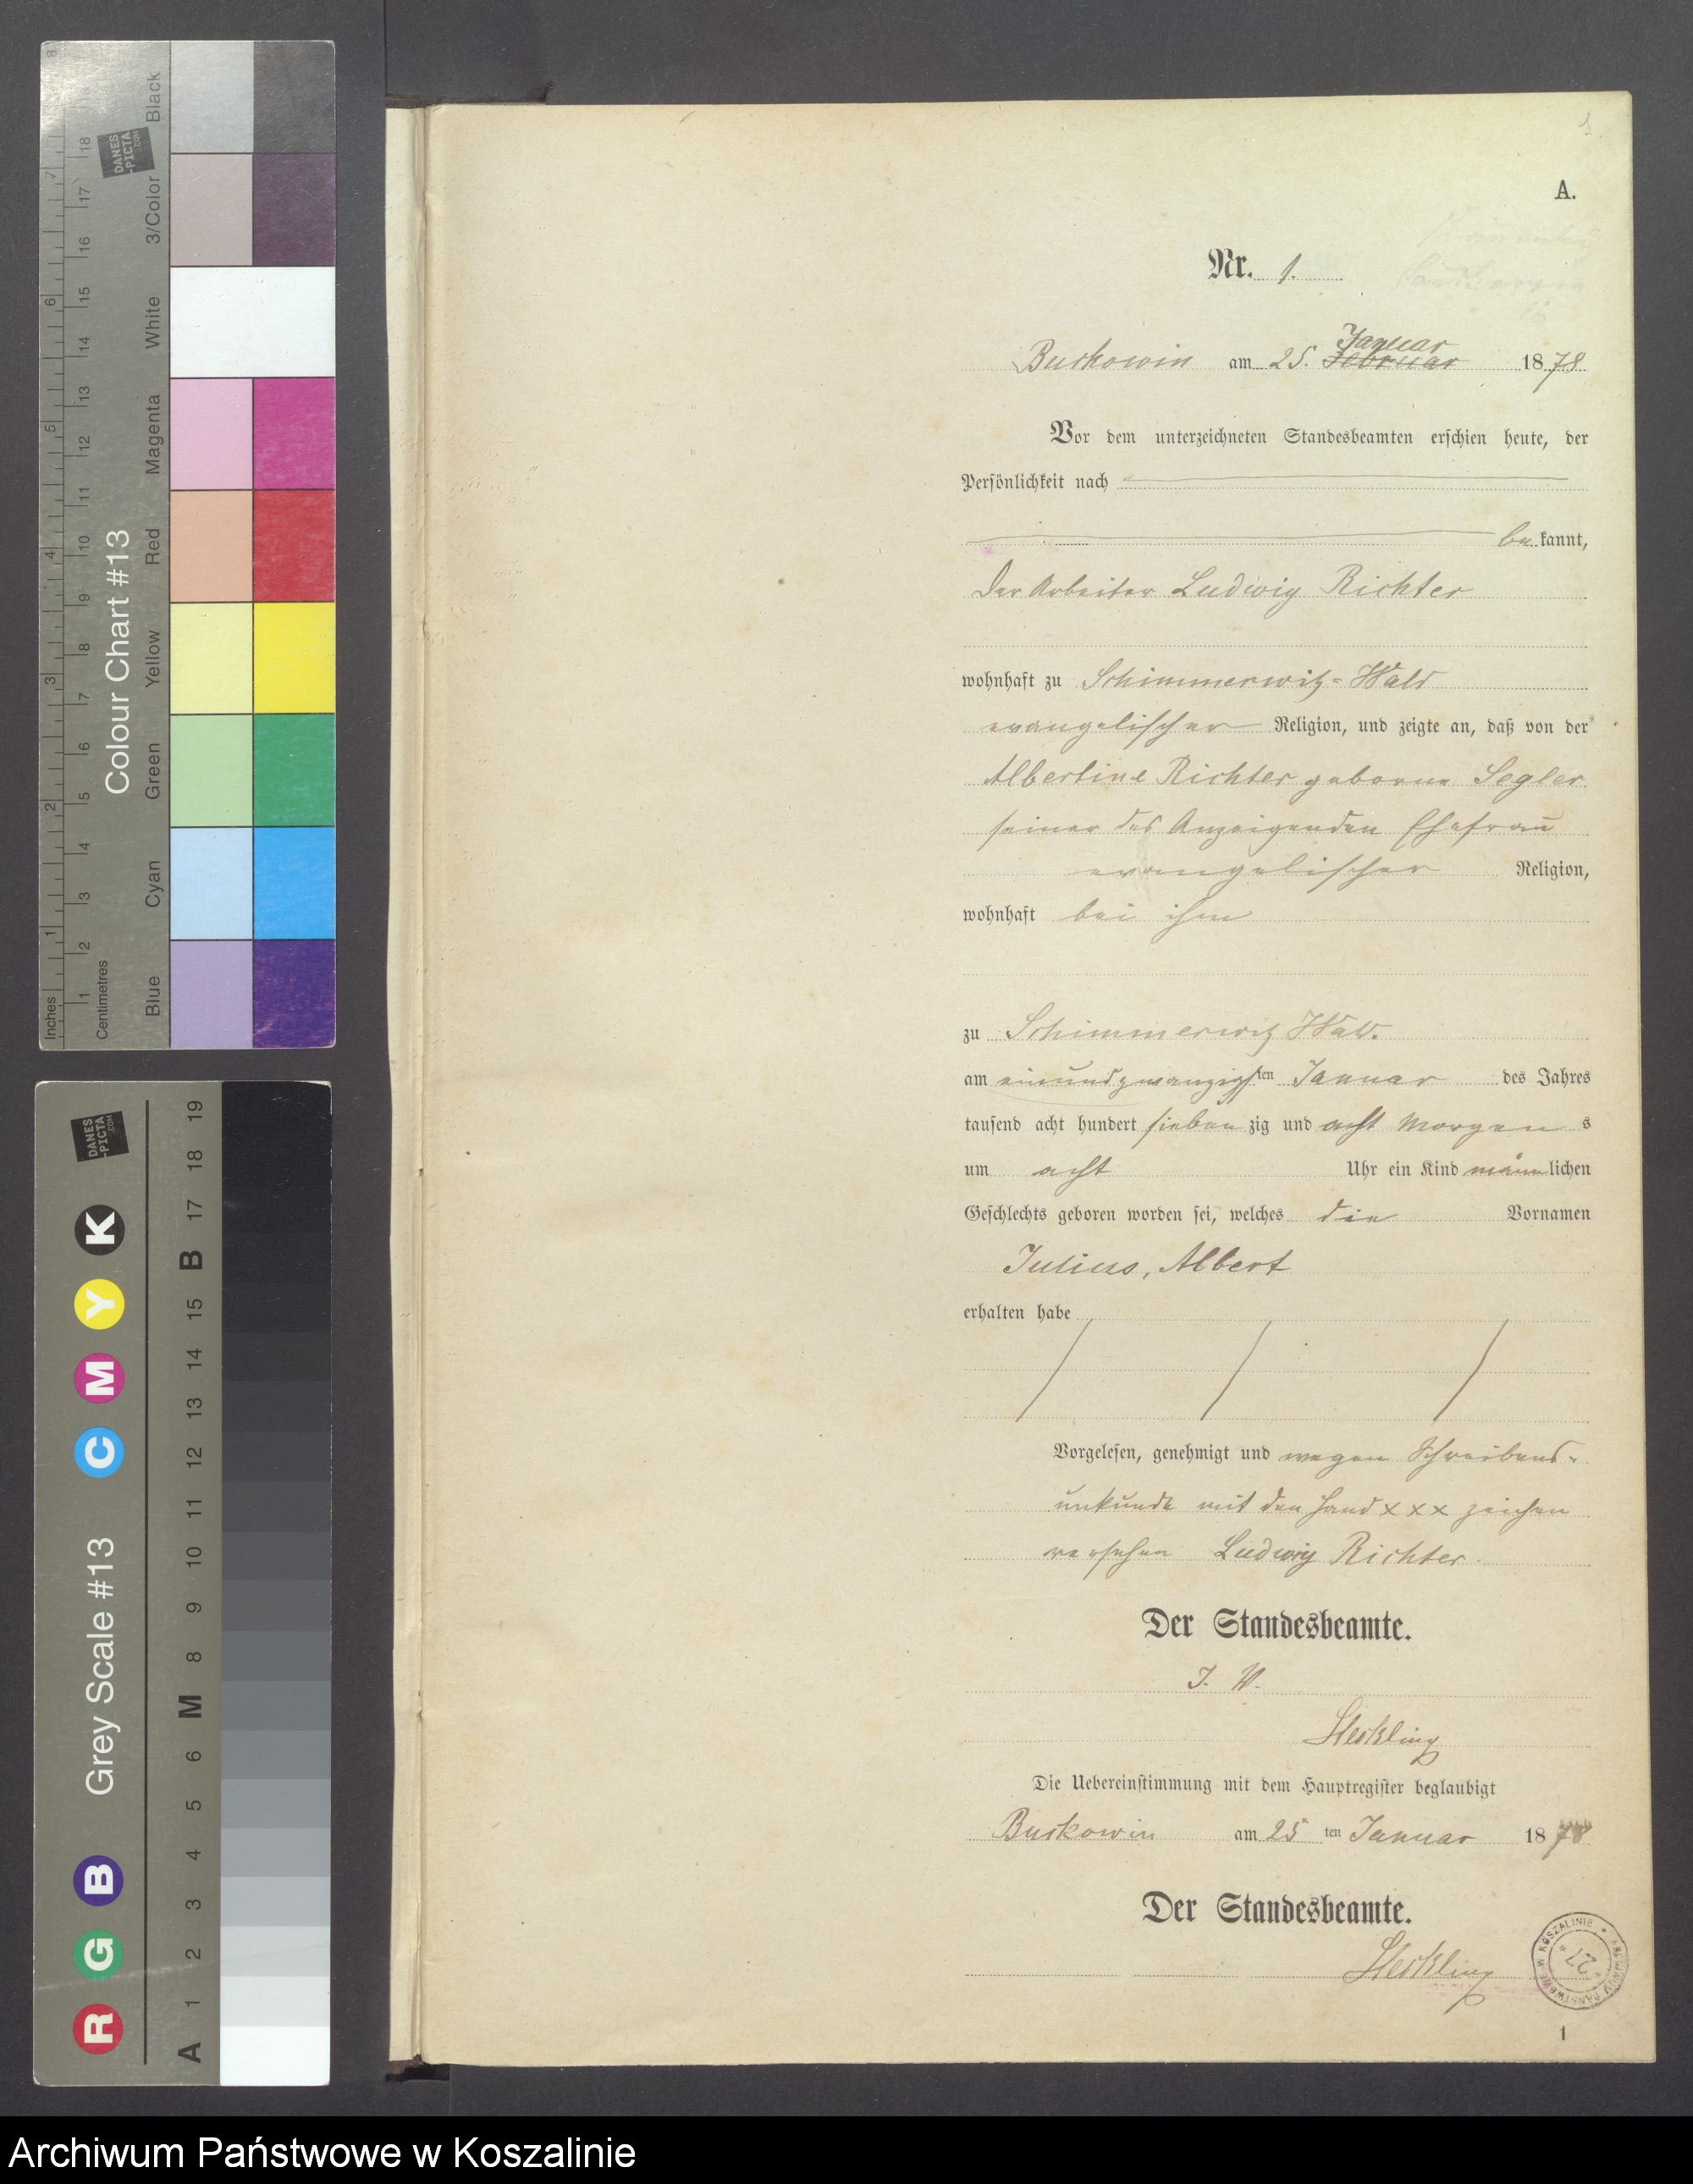 A.
Nr. 1.
Buckowin am 25. Januar
Februar 1878
Vor dem unterzeichneten Standesbeamten erschien heute, der
Persönlichkeit nach
be kannt,
der Arbeiter Ludwig Richter
wohnhaft zu Schimmerwitz-Wald
evangelischer Religion, und zeigte an, daß von der
Albertine Richter geborne Segler
seiner des Anzeigenden Ehefrau
evangelischer Religion,
wohnhaft bei ihm
zu Schimmerwitz Wald.
am einundzwanzigsten Januar des Jahres
tausend acht hundert sieben zig und acht Morgen s
um acht Uhr ein Kind männlichen
Geschlechts geboren worden sei, welches die Vornamen
Julius, Albert
erhalten habe
Vorgelesen, genehmigt und wegen Schreibens-
unkunde mit den Hand x x x zeichen
versehen Ludwig Richter.
Der Standesbeamte.
J. V.
Heckling
Die Uebereinstimmung mit dem Hauptregister beglaubigt
Buckowin am 25 ten Januar 1878
Der Standesbeamte.
Heckling
ARCHIWUM PAŃSTWOWE W KOSZALINIE
* 27 *
1
Inches
Centimetres
Colour Chart #13
Blue Cyan Green Yellow Red Magenta White 3/Color Black
DANES
-PICTA
.COM
Grey Scale #13
R G B C M Y K
A 1 2 3 4 5 6 M 8 9 10 11 12 13 14 15 B 17 18 19
DANES
-PICTA
.COM
Archiwum Państwowe w Koszalinie